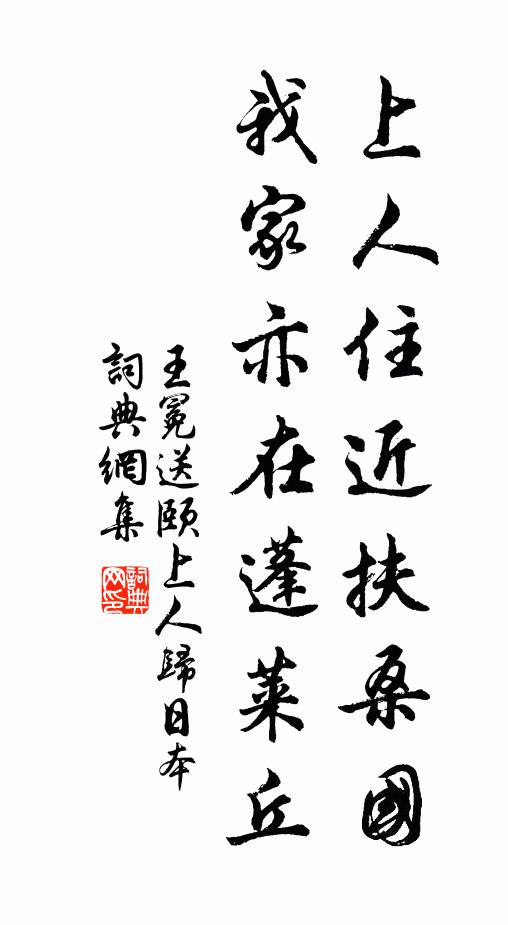 上人住近扶桑國
我家亦在蓬萊丘
王冕送頤上人歸日本
詞典網集
詞典
网印